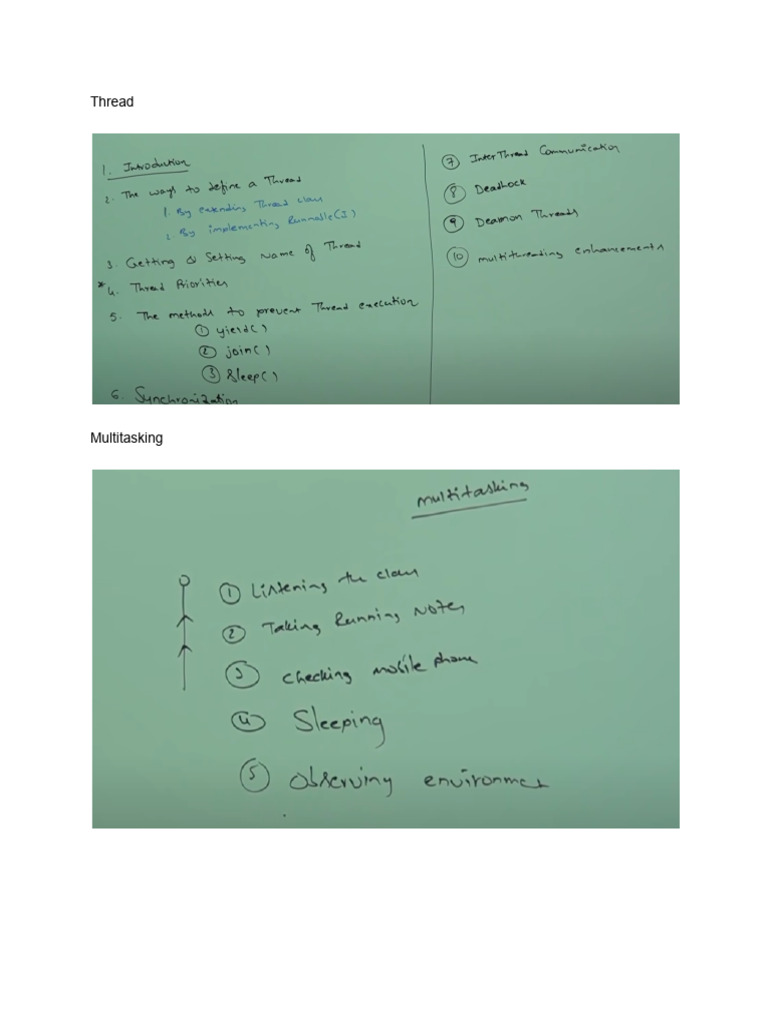 Thread
1. Introduction
2. The ways to define a Thread
1. By extending Thread class
2. By implementing Runnable(I)
3. Getting & Setting Name of Thread
*4. Thread Priorities
5. The methods to prevent Thread execution
① yield()
② join()
③ Sleep()
6. Synchronization
⑦ InterThread Communication
⑧ Deadlock
⑨ Deamon Threads
⑩ multithreading enhancements
Multitasking
multitasking
① Listening the class
② Taking Running Notes
③ checking mobile phone
④ Sleeping
⑤ observing environmet